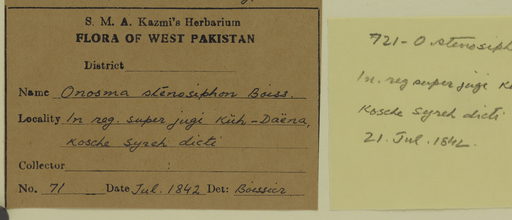 S. M. A. Kazmi's Herbarium
FLORA OF WEST PAKISTAN
District
Name Onosma stenosiphon Boiss.
Locality In reg. super jugi Kuh-Daëna,
Kosche Syreh dicti
Collector
No. 71 Date Jul. 1842 Det: Boissier
721 - O stenosiph
In. reg super jugi K
Kosche Syreh dicti
21. Jul. 1842.